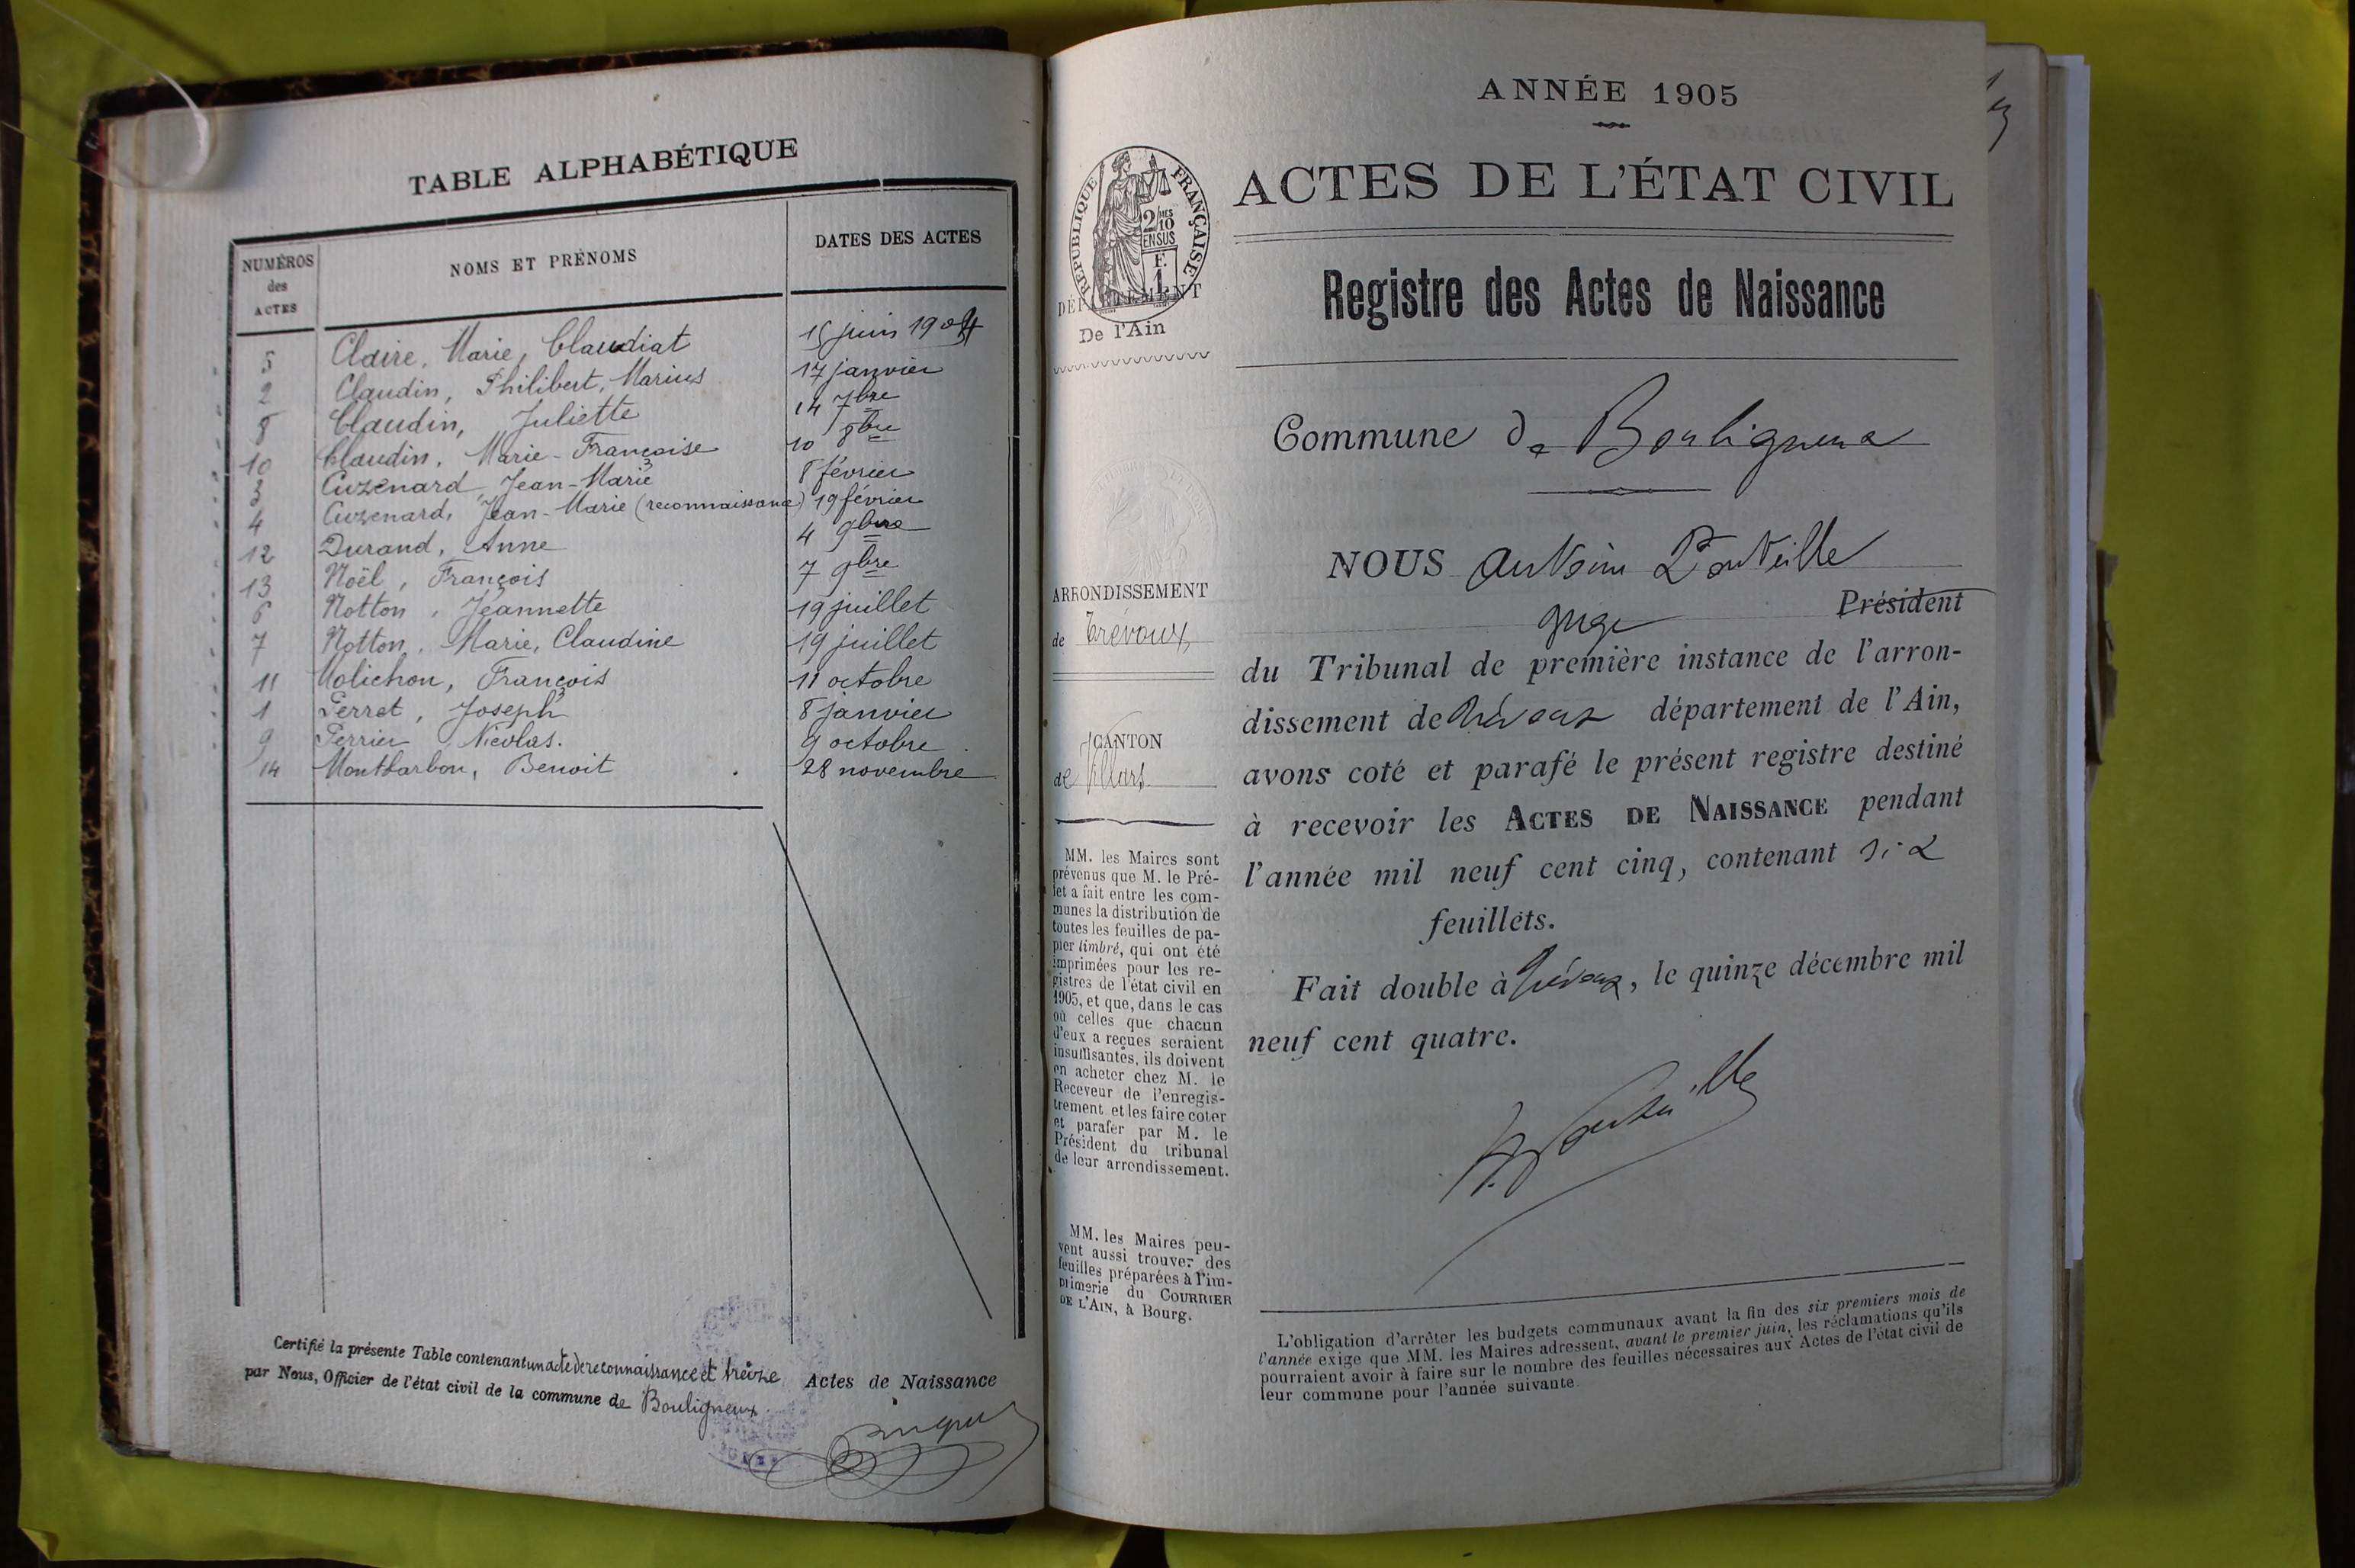 TABLE ALPHABÉTIQUE
NUMÉROS des ACTES
NOMS ET PRÉNOMS
DATES DES ACTES
5 Claire, Marie, Claudiat 15 juin 1904
2 Claudin, Philibert, Marius 17 janvier
8 Claudin, Juliette 14 7bre
10 Claudin, Marie-Françoise 10 8bre
3 Cuzenard, Jean-Marie 8 février
4 Cuzenard, Jean-Marie (reconnaissance) 19 février
12 Durand, Anne 4 9bre
13 Noël, François 7 9bre
6 Notton, Jeannette 19 juillet
7 Notton, Marie, Claudine 19 juillet
11 Molichon, François 11 octobre
1 Perret, Joseph 8 janvier
9 Perrier Nicolas. 9 octobre
14 Montbarbon, Benoit 28 novembre
Certifié la présente Table contenant un acte de reconnaissance et treize Actes de Naissance
par Nous, Officier de l'état civil de la commune de Bouligneux
ANNÉE 1905
ACTES DE L'ÉTAT CIVIL
RÉPUBLIQUE FRANÇAISE
2/10
EN SUS
F.
1
DÉPARTEMENT
De l'Ain
Registre des Actes de Naissance
Commune de Bouligneux
ARRONDISSEMENT
de Trévoux
CANTON
de Villars
MM. les Maires sont
prévenus que M. le Pré-
fet a fait entre les com-
munes la distribution de
toutes les feuilles de pa-
pier timbré, qui ont été
imprimées pour les re-
gistres de l'état civil en
1905, et que, dans le cas
où celles que chacun
d'eux a reçues seraient
insuffisantes, ils doivent
en acheter chez M. le
Receveur de l'enregis-
trement et les faire coter
et parafer par M. le
Président du tribunal
de leur arrondissement.
MM. les Maires peu-
vent aussi trouver des
feuilles préparées à l'im-
primerie du COURRIER
DE L'AIN, à Bourg.
NOUS Antoine Ponteille
juge Président
du Tribunal de première instance de l'arron-
dissement de Trévoux département de l'Ain,
avons coté et parafé le présent registre destiné
à recevoir les ACTES DE NAISSANCE pendant
l'année mil neuf cent cinq, contenant six
feuillets.
Fait double à Trévoux, le quinze décembre mil
neuf cent quatre.
L'obligation d'arrêter les budgets communaux avant la fin des six premiers mois de
l'année exige que MM. les Maires adressent, avant le premier juin, les réclamations qu'ils
pourraient avoir à faire sur le nombre des feuilles nécessaires aux Actes de l'état civil de
leur commune pour l'année suivante.